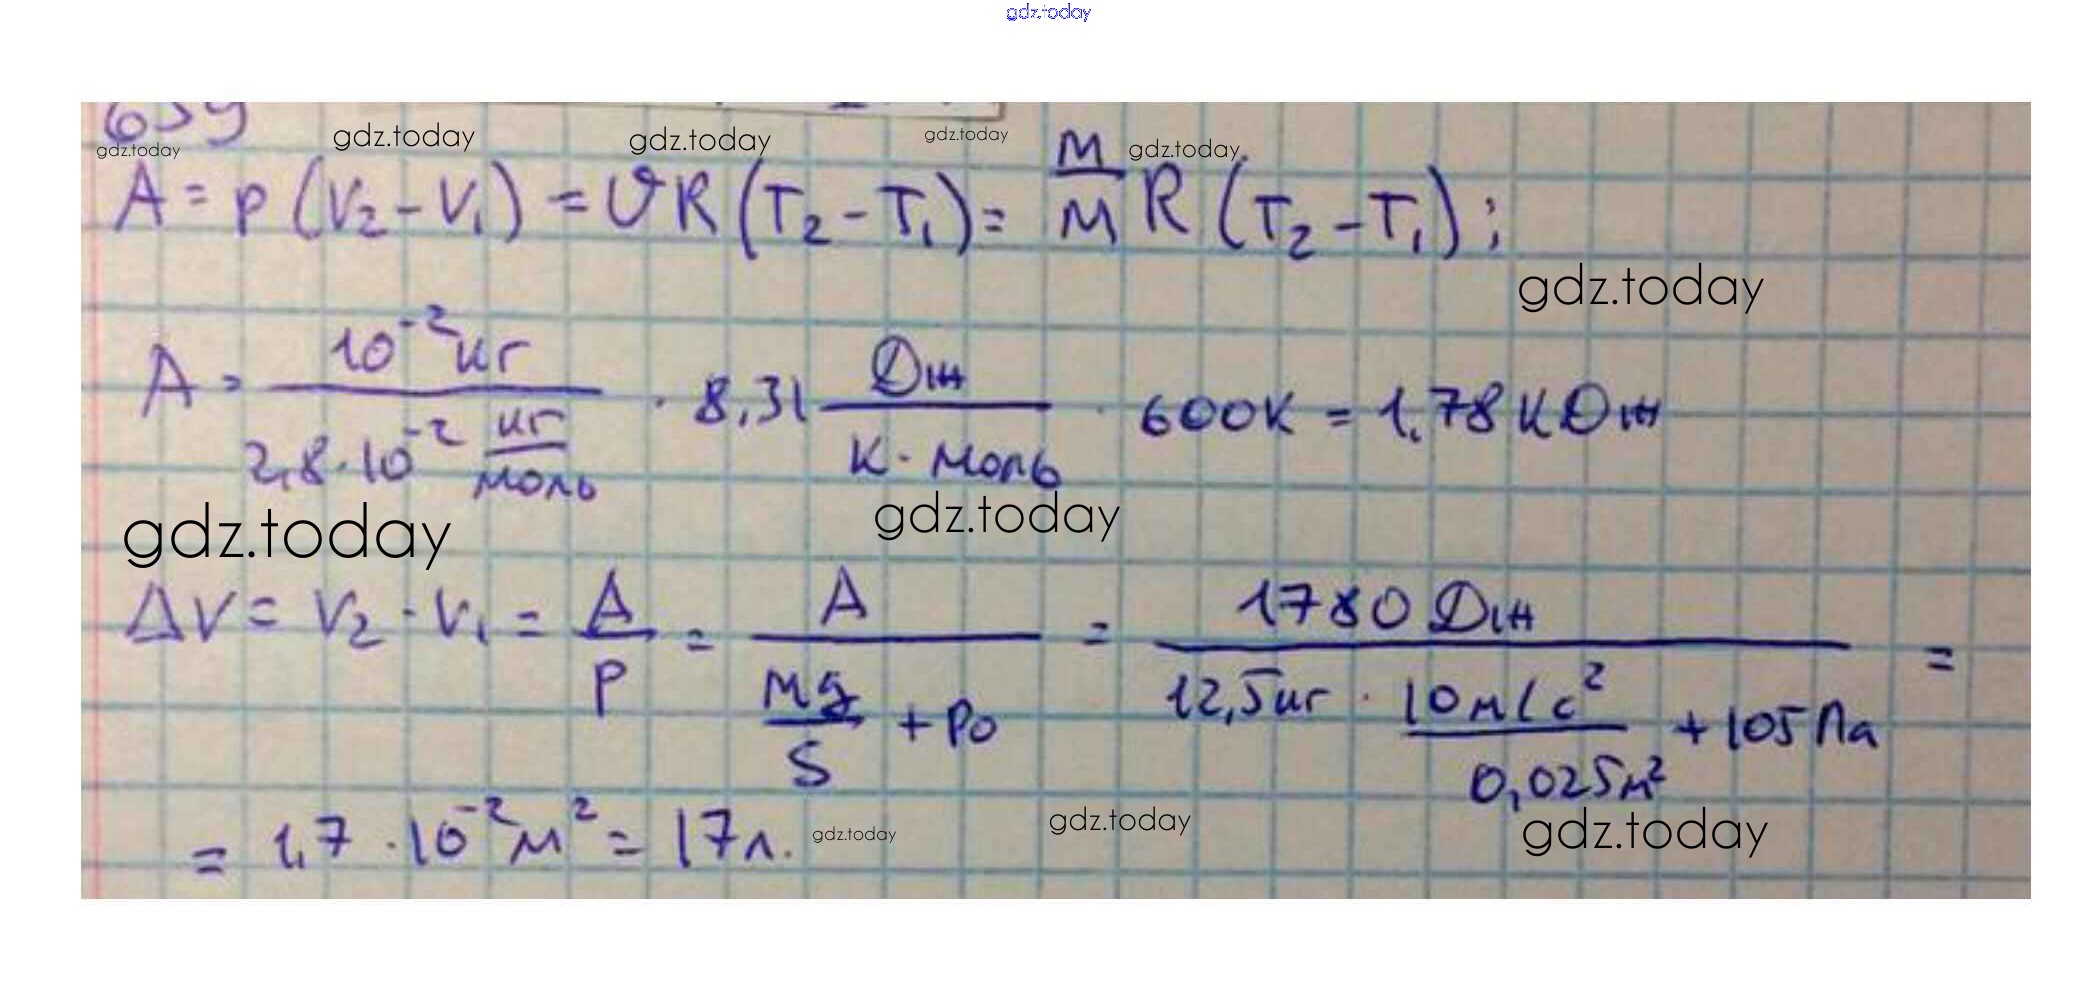 gdz.today
639
gdz.today gdz.today gdz.today gdz.today gdz.today
A = p (V₂ - V₁) = νR (T₂ - T₁) = m/M R (T₂ - T₁) ;
gdz.today
A = 10⁻² кг / 2,8 · 10⁻² кг/моль · 8,31 Дж / К · моль · 600К = 1,78 кДж
gdz.today gdz.today
ΔV = V₂ - V₁ = A/p = A / (mg/S + p₀) = 1780 Дж / 12,5 кг · 10 м/с² / 0,025 м² + 105 Па =
= 1,7 · 10⁻² м² = 17 л.
gdz.today gdz.today gdz.today